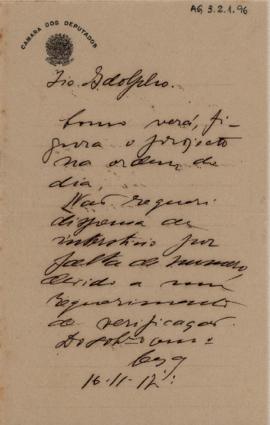 AG, 3.2.1.96
CAMARA DOS DEPUTADOS
Tio Adolpho.
Como verá, fi-
gura o projecto
na ordem do
dia.
Não requeri
dispensa de
intersticio por
falta de numero,
devido a um
requerimento
de verificação.
Do sobrº amº
16-11-17